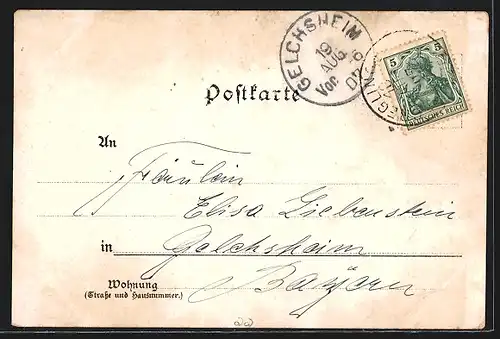 GELCHSHEIM
19 AUG
Vor
5 5
DEUTSCHES REICH
Postkarte
An
Fräulein
Elisa Liebenstein
in Gelchsheim
Bayern
Wohnung
(Straße und Hausnummer.)